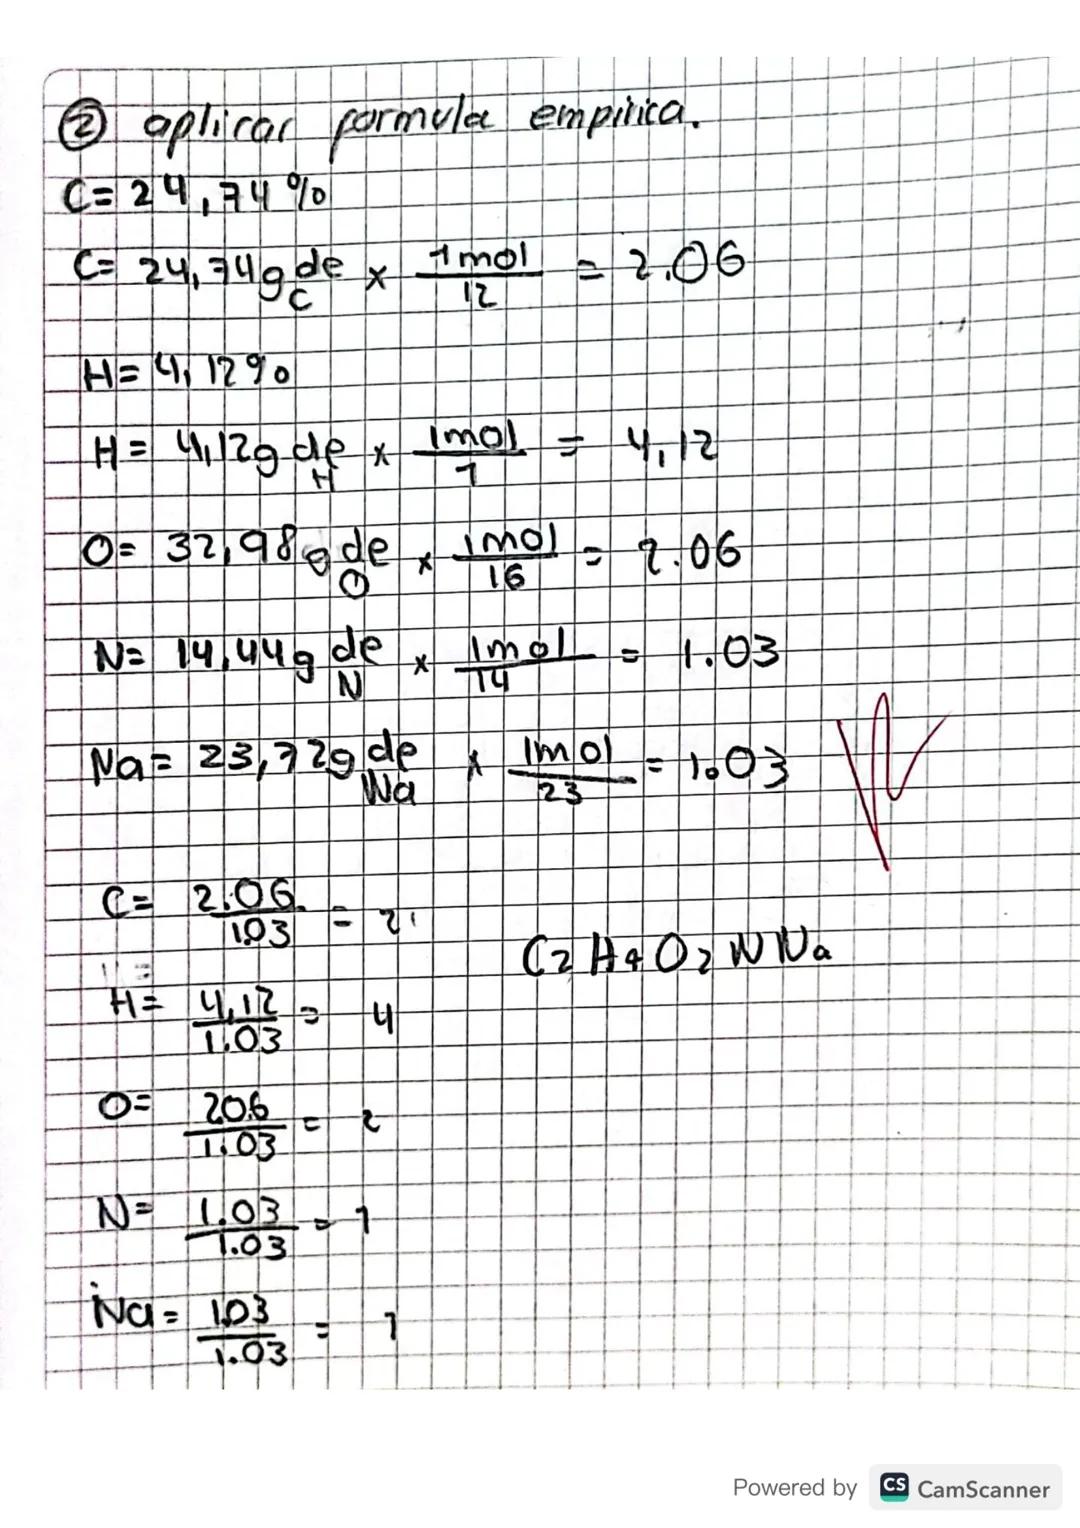 ② aplicar formula empirica.
C= 24,74%
C= 24,74g de C x 1mol/12 = 2.06
H= 4,12%
H= 4,12g de H x 1mol/1 = 4,12
O= 32,98g de O x 1mol/16 = 2.06
N= 14,44g de N x 1mol/14 = 1.03
Na= 23,72g de Na x 1mol/23 = 1.03
C= 2.06/1.03 = 2
C2 H4 O2 N Na
H= 4,12/1.03 = 4
O= 206/1.03 = 2
N= 1.03/1.03 = 1
Na= 1.03/1.03 = 1
Powered by CS CamScanner